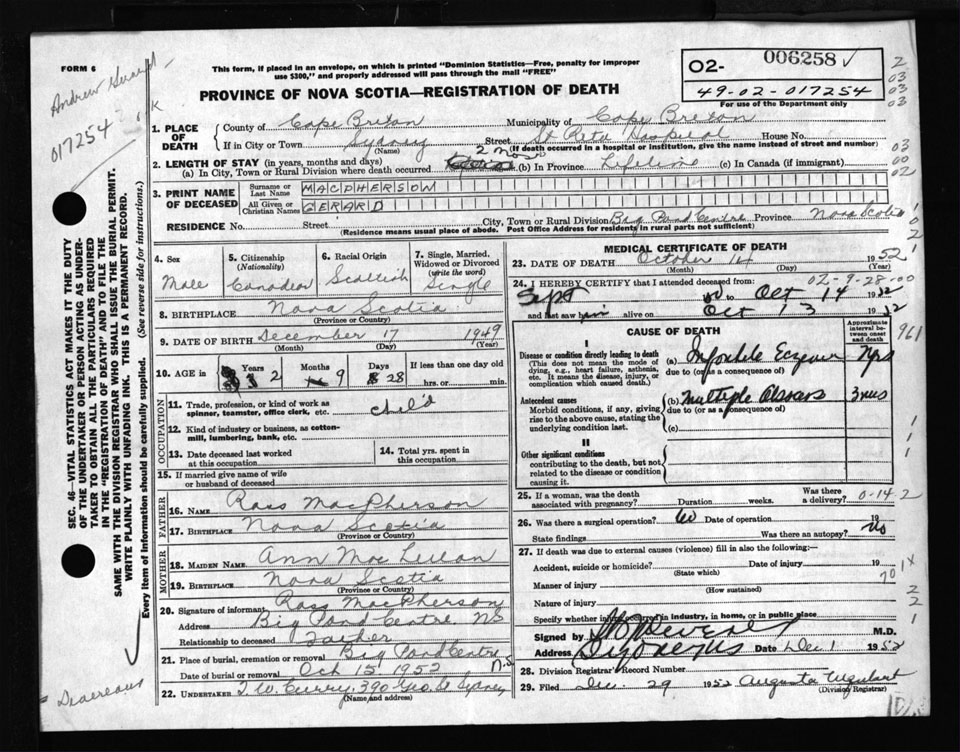 FORM 6
This form, if placed in an envelope, on which is printed "Dominion Statistics—Free, penalty for improper
use $300," and properly addressed will pass through the mail "FREE"
PROVINCE OF NOVA SCOTIA—REGISTRATION OF DEATH
O2- 006258
49-02-017254
For use of the Department only
Andrew
017254
K
SEC. 46—VITAL STATISTICS ACT MAKES IT THE DUTY
OF THE UNDERTAKER OR PERSON ACTING AS UNDER-
TAKER TO OBTAIN ALL THE PARTICULARS REQUIRED
IN THE "REGISTRATION OF DEATH" AND TO FILE THE
SAME WITH THE DIVISION REGISTRAR WHO SHALL ISSUE THE BURIAL PERMIT.
WRITE PLAINLY WITH UNFADING INK. THIS IS A PERMANENT RECORD.
Every item of information should be carefully supplied. (See reverse side for instructions.)
1. PLACE OF DEATH
County of Cape Breton Municipality of Cape Breton
If in City or Town Sydney Street St Rita Hospital House No.
(Name) (If death occurred in a hospital or institution, give the name instead of street and number)
2. LENGTH OF STAY (in years, months and days)
(a) In City, Town or Rural Division where death occurred 2 mos (b) In Province Lifetime (c) In Canada (if immigrant)
3. PRINT NAME OF DECEASED
Surname or Last Name MACPHERSON
All Given or Christian Names GERARD
RESIDENCE No. Street City, Town or Rural Division Big Pond Centre Province Nova Scotia
(Residence means usual place of abode. Post Office Address for residents in rural parts not sufficient)
4. Sex Male
5. Citizenship (Nationality) Canadian
6. Racial Origin Scottish
7. Single, Married, Widowed or Divorced (write the word) Single
8. BIRTHPLACE Nova Scotia
(Province or Country)
9. DATE OF BIRTH December 17 1949
(Month) (Day) (Year)
10. AGE in Years 2 Months 9 Days 28 If less than one day old
hrs. or min.
OCCUPATION
11. Trade, profession, or kind of work as
spinner, teamster, office clerk, etc. child
12. Kind of industry or business, as cotton-
mill, lumbering, bank, etc.
13. Date deceased last worked
at this occupation
14. Total yrs. spent in
this occupation
15. If married give name of wife
or husband of deceased
FATHER
16. NAME Ross MacPherson
17. BIRTHPLACE Nova Scotia
(Province or Country)
MOTHER
18. MAIDEN NAME Ann Mac
19. BIRTHPLACE Nova Scotia
(Province or Country)
20. Signature of informant Ross MacPherson
Address Big Pond Centre NS
Relationship to deceased Father
21. Place of burial, cremation or removal Big Pond Centre N.S
Date of burial or removal Oct 15 1952
22. UNDERTAKER T.W. Curry, 390 Geo St Sydney
(Name and address)
Devereaux
MEDICAL CERTIFICATE OF DEATH
23. DATE OF DEATH October 14 1952
(Month) (Day) (Year)
02-9-28-000
24. I HEREBY CERTIFY that I attended deceased from:
Sept to Oct 14 1952
and last saw him alive on Oct 13 1952
CAUSE OF DEATH
Approximate
interval be-
tween onset
and death
961
I
Disease or condition directly leading to death
(This does not mean the mode of
dying, e.g., heart failure, asthenia,
etc. It means the disease, injury, or
complication which caused death.)
(a) Infantile Eczema
due to (or as a consequence of)
Antecedent causes
Morbid conditions, if any, giving
rise to the above cause, stating the
underlying condition last.
(b) Multiple 3 mos
due to (or as a consequence of)
(c)
II
Other significant conditions
contributing to the death, but not
related to the disease or condition
causing it.
25. If a woman, was the death
associated with pregnancy? Duration weeks. Was there
a delivery? 0-14-2
26. Was there a surgical operation? No Date of operation 19
State findings Was there an autopsy? No
27. If death was due to external causes (violence) fill in also the following:—
Accident, suicide or homicide? Date of injury 19
(State which)
Manner of injury
(How sustained)
Nature of injury
Specify whether injury occurred in industry, in home, or in public place
Signed by M.D.
Address Date Dec 1 1952
28. Division Registrar's Record Number
29. Filed Dec. 29 1952 Augusta Urquhart
(Division Registrar)